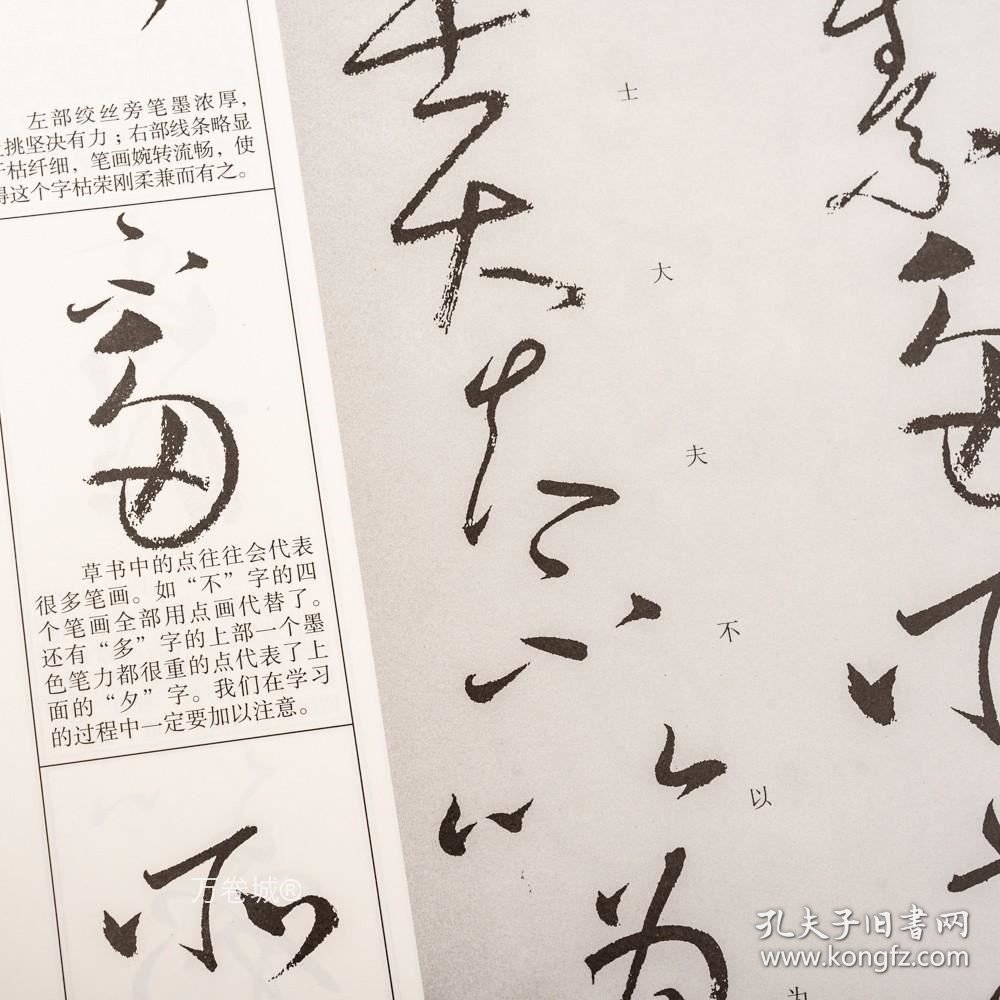 左部绞丝旁笔墨浓厚，
挑坚决有力；右部线条略显
枯纤细，笔画婉转流畅，使
得这个字枯荣刚柔兼而有之。
草书中的点往往会代表
很多笔画。如“不”字的四
个笔画全部用点画代替了。
还有“多”字的上部一个墨
色笔力都很重的点代表了上
面的“夕”字。我们在学习
的过程中一定要加以注意。
士
大
夫
不
以
为
万卷城®
孔夫子旧书网
www.kongfz.com